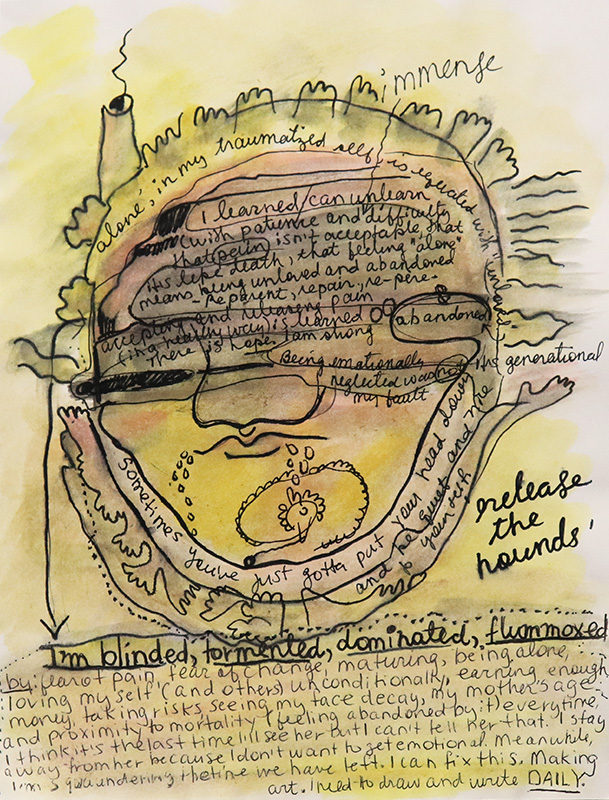 immense
alone, in my traumatized self, is equated with "unloved"
I learned/can unlearn
(with patience and difficulty
that pain isn't acceptable, that
its like death, that feeling "alone"
means being unloved and abandoned
- reparent, repair, re-pere-
accepting and releasing pain
(in a healthy way) is learned
There is hope. I am strong
abandoned
Being emotionally
neglected was not
my fault
its generational
Sometimes you've just gotta put your head down
and be quiet and
to your
release
the
hounds'
I'm blinded, tormented, dominated, flummoxed
by fear of pain fear of change, maturing, being alone,
loving myself (and others) unconditionally, earning enough
money, taking risks seeing my face decay, my mother's age
and proximity to mortality (feeling abandoned by it) everytime
I think it's the last time I'll see her but I can't tell her that. I stay
away from her because I don't want to get emotional. Meanwhile,
I'm squandering the time we have left. I can fix this. Making
art. I need to draw and write DAILY.